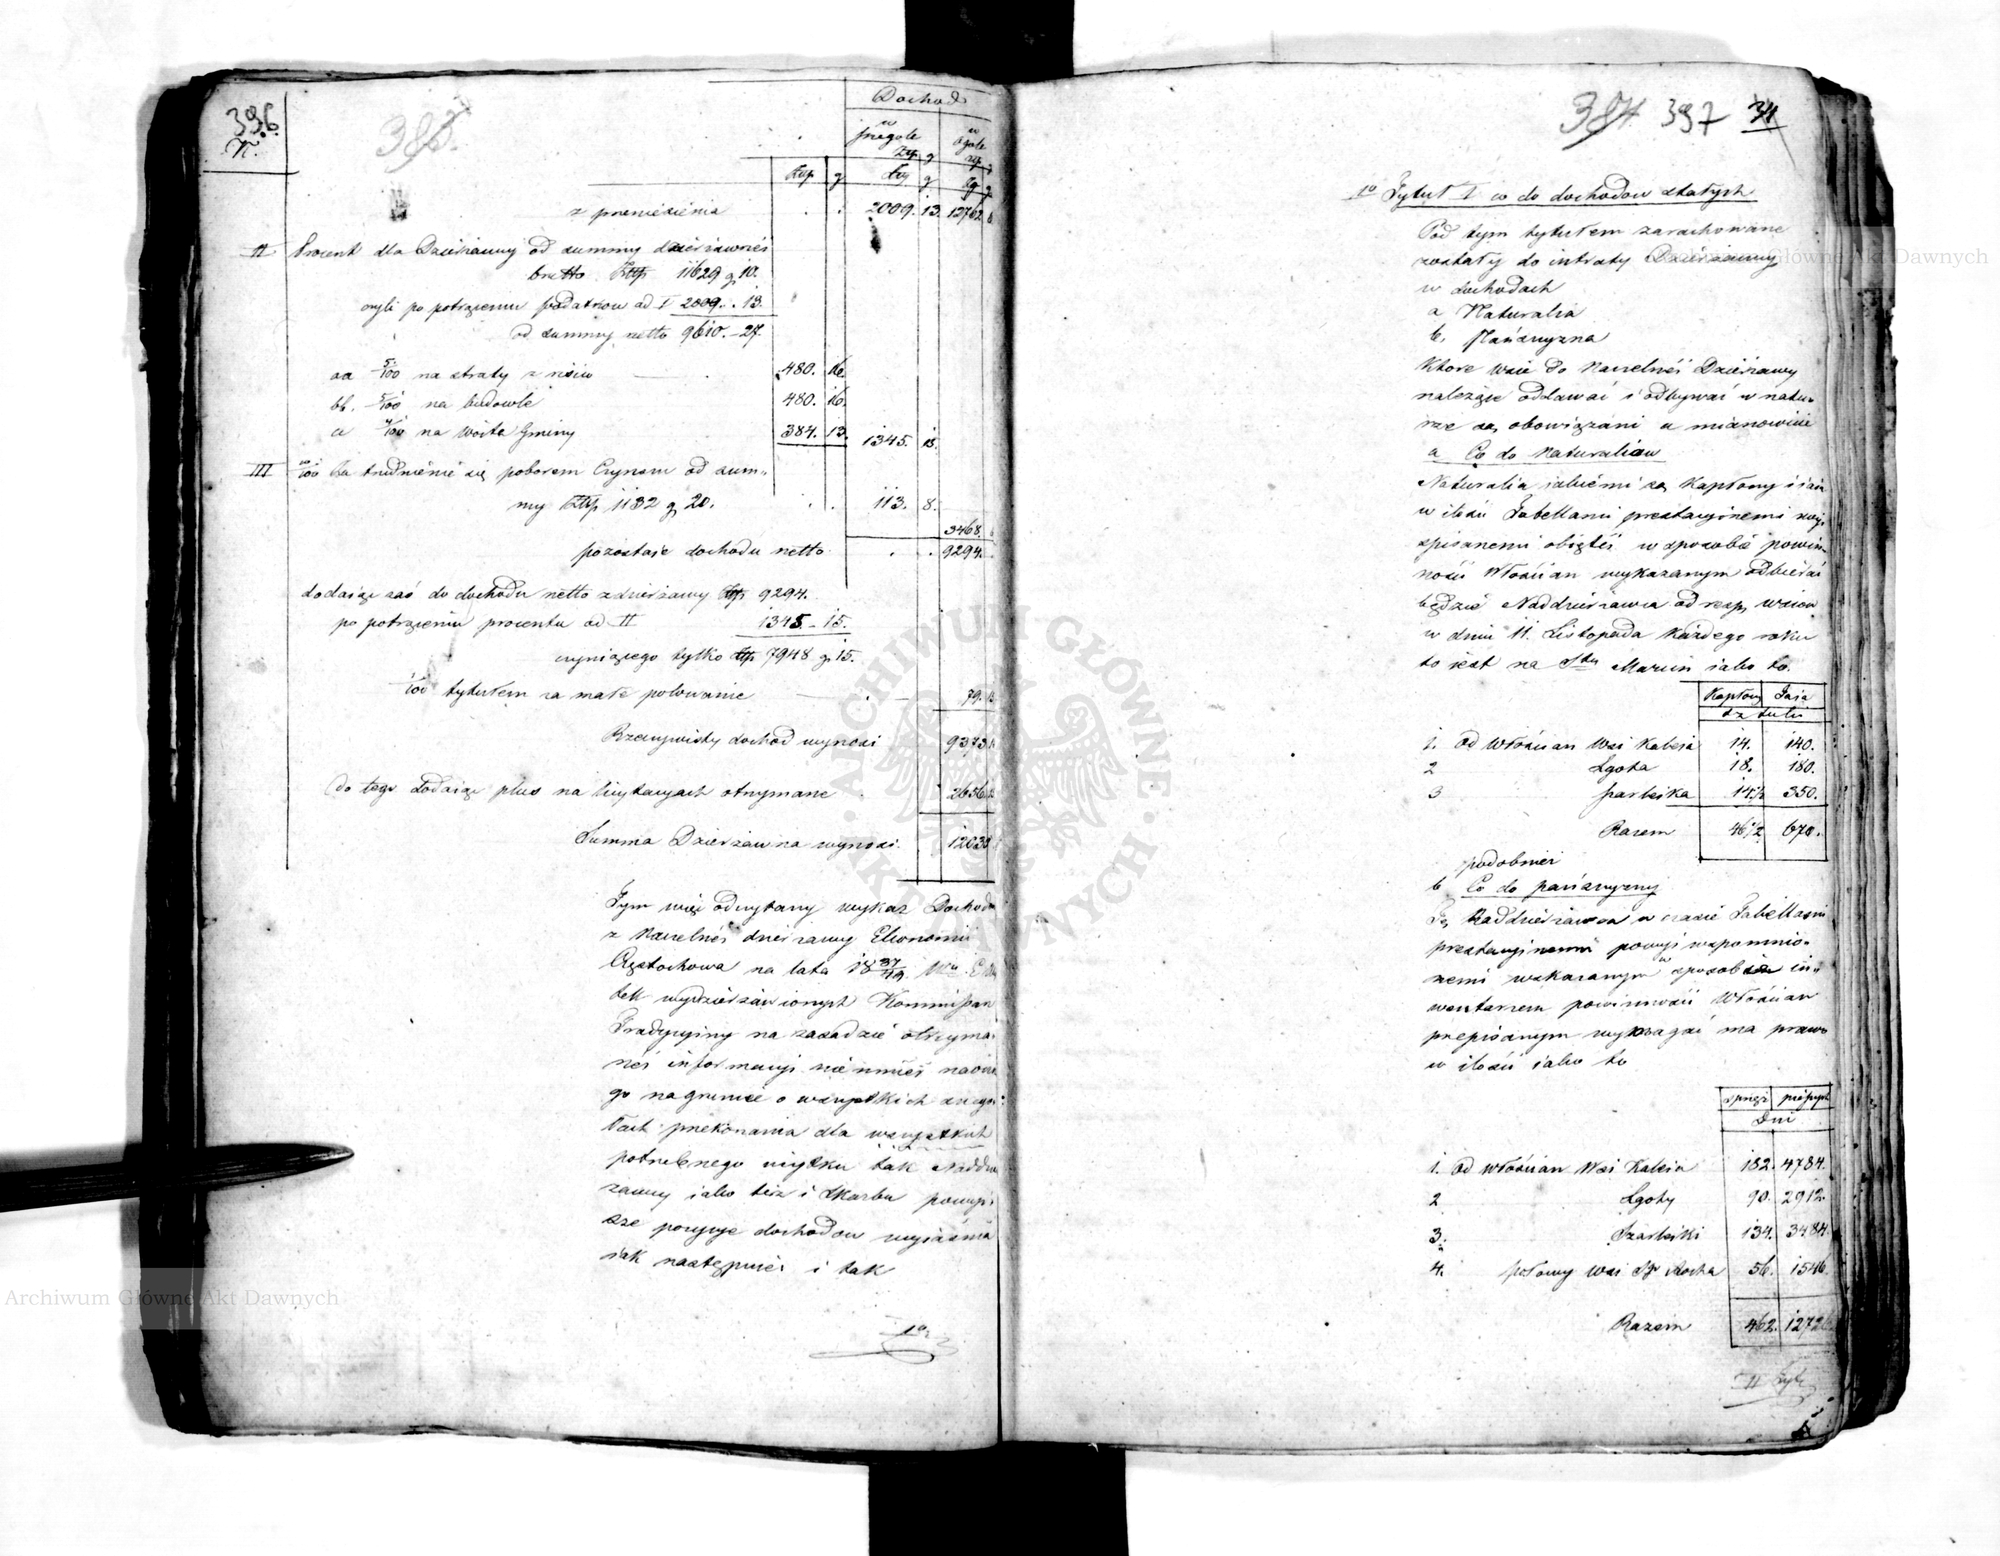 396.
N.
385.
Dochod
w szczególe w ogóle
Złp g złp g
Złp g Złp g Złp g
z przeniesienia . . 2009. 13. 12762
II Procent dla Dzierżawcy od summy dzierżawnéj
brutto Złp 11620 g 10.
czyli po potrąceniu podatków ad I 2009. . 13.
od summy netto 9610. – 27.
aa 5/100 na straty z nich 480. 16.
bb. 5/100 na budowle 480. 16.
cc 4/100 na Wójta Gminy 384. 13. 1345. 15.
III 10/100 Za trudnienie się poborem Czynszu od sum„
my Złp 1132 g 20. . . 113. 8.
3468.
pozostaje dochodu netto . . 9294.
dodając zaś do dochodu netto z dzierżawy Złp 9294.
po potrąceniu procentu ad II 1345 – 15.
czyniącego tylko Złp 7948 g 15.
1/100 tytułem za małe polowanie 79.
Rzeczywisty dochod wynosi 9373
do tego dodając plus na licytacyach otrzymane 2656
Summa Dzierżawna wynosi 12030
Tym więc odczytany wykaz Dochodu
z Naczelnéj dzierżawy Ekonomii
Częstochowa na lata 1837/49
wydzierżawionych Kommissarz
Tradycyiny na zasadzie otrzyma„
néj informacyi nie
go na gruncie o wszystkich
łach przekonania dla wszystkich
potrzebnego użytku tak Naddzier
żawcy jako téż i Skarbu powyż„
sze pozycye dochodów wyiaśnia
jak następuie i tak
1o
384. 397 31
1o Tytuł I co do dochodów stałych
Pod tym tytułem zarachowane
zostały do intraty Dzierżawnéj
w dochodach
a Naturalia
b. Pańszczyzna
które wsie do Naczelnéj Dzierżawy
należące oddawać i odbywać w natu„
rze są obowiązani a mianowicie
a Co do Naturaliów
Naturalia jakiémi są Kapłony i jaia
w ilości Tabellami prestacyinemi wyż
spisanemi objęté w sposobie powin„
ności Włościan wykazanym odbierać
będzie Naddzierżawca od resp. wsiow
w dniu 11. Listopada każdego roku
to jest na Sty Marcin jako to.
Kapłony Jaia
sztuki
1. od Włościan Wsi Kalesia 14. 140.
2 Lgota 18. 180.
3 Szarlejka 14 1/2 350.
Razem 46 1/2 670.
podobnież
b Co do pańszczyzny
Tę Naddzierżawca w czasie Tabellami
prestacyinemi powyż wspomnio„
nemi wskazanym w sposobie in„
wentarzem powinności Włościan
przepisanym wymagać ma prawo
w ilości jako to
sprzęż pieszych
Dni
1. od włościan Wsi Kalesia 182. 4784.
2 Lgoty 90. 2912.
3. Szarlejki 134. 3484.
4. połowy wsi Sgo Rocha 56. 1546.
Razem 462. 1272
II Tyt
Archiwum Główne Akt Dawnych
Główne Akt Dawnych
ARCHIWUM GŁÓWNE AKT DAWNYCH